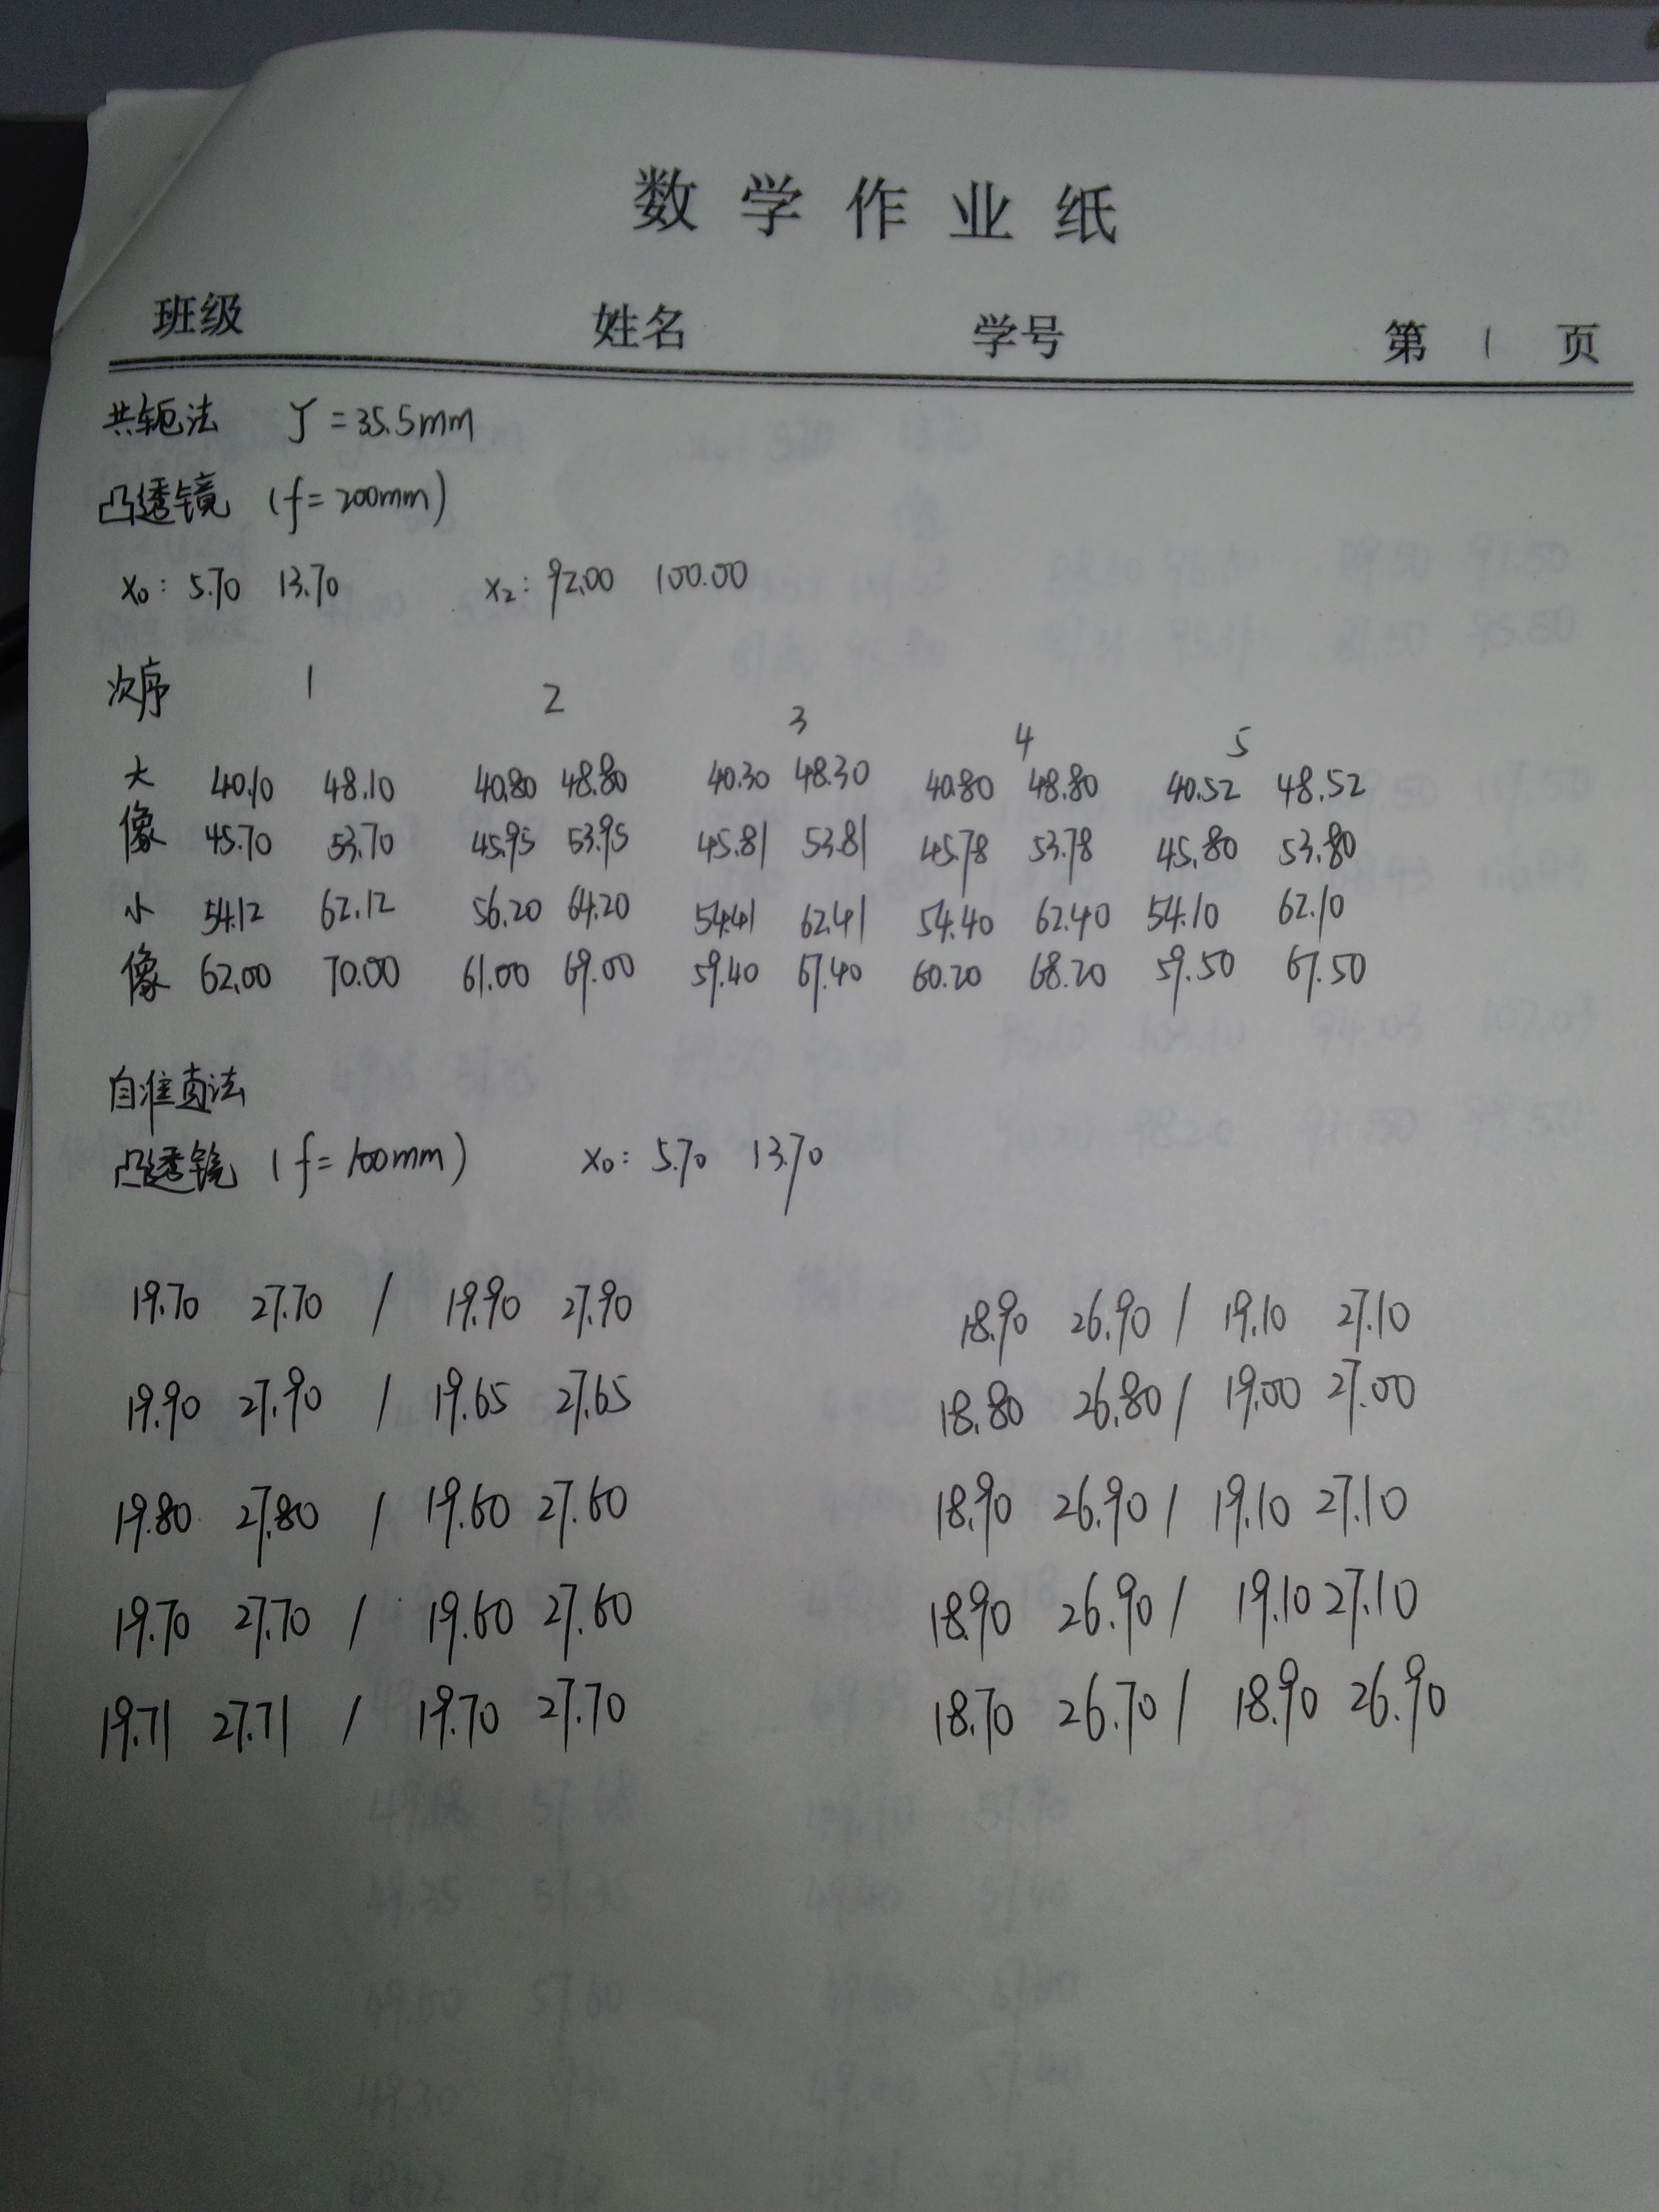 数学作业纸
班级 姓名 学号 第 1 页
共轭法 y = 35.5mm
凸透镜 (f = 200mm)
x₀: 5.70 13.70 x₂: 92.00 100.00
次序 1 2 3 4 5
大 40.10 48.10 40.80 48.80 40.30 48.30 40.80 48.80 40.52 48.52
像 45.70 53.70 45.95 53.95 45.81 53.81 45.78 53.78 45.80 53.80
小 54.12 62.12 56.20 64.20 54.41 62.41 54.40 62.40 54.10 62.10
像 62.00 70.00 61.00 69.00 59.40 67.40 60.20 68.20 59.50 67.50
自准直法
凸透镜 (f = 100mm) x₀: 5.70 13.70
19.70 27.70 / 19.90 27.90 18.90 26.90 / 19.10 27.10
19.90 27.90 / 19.65 27.65 18.80 26.80 / 19.00 27.00
19.80 27.80 / 19.60 27.60 18.90 26.90 / 19.10 27.10
19.70 27.70 / 19.60 27.60 18.90 26.90 / 19.10 27.10
19.71 27.71 / 19.70 27.70 18.70 26.70 / 18.90 26.90